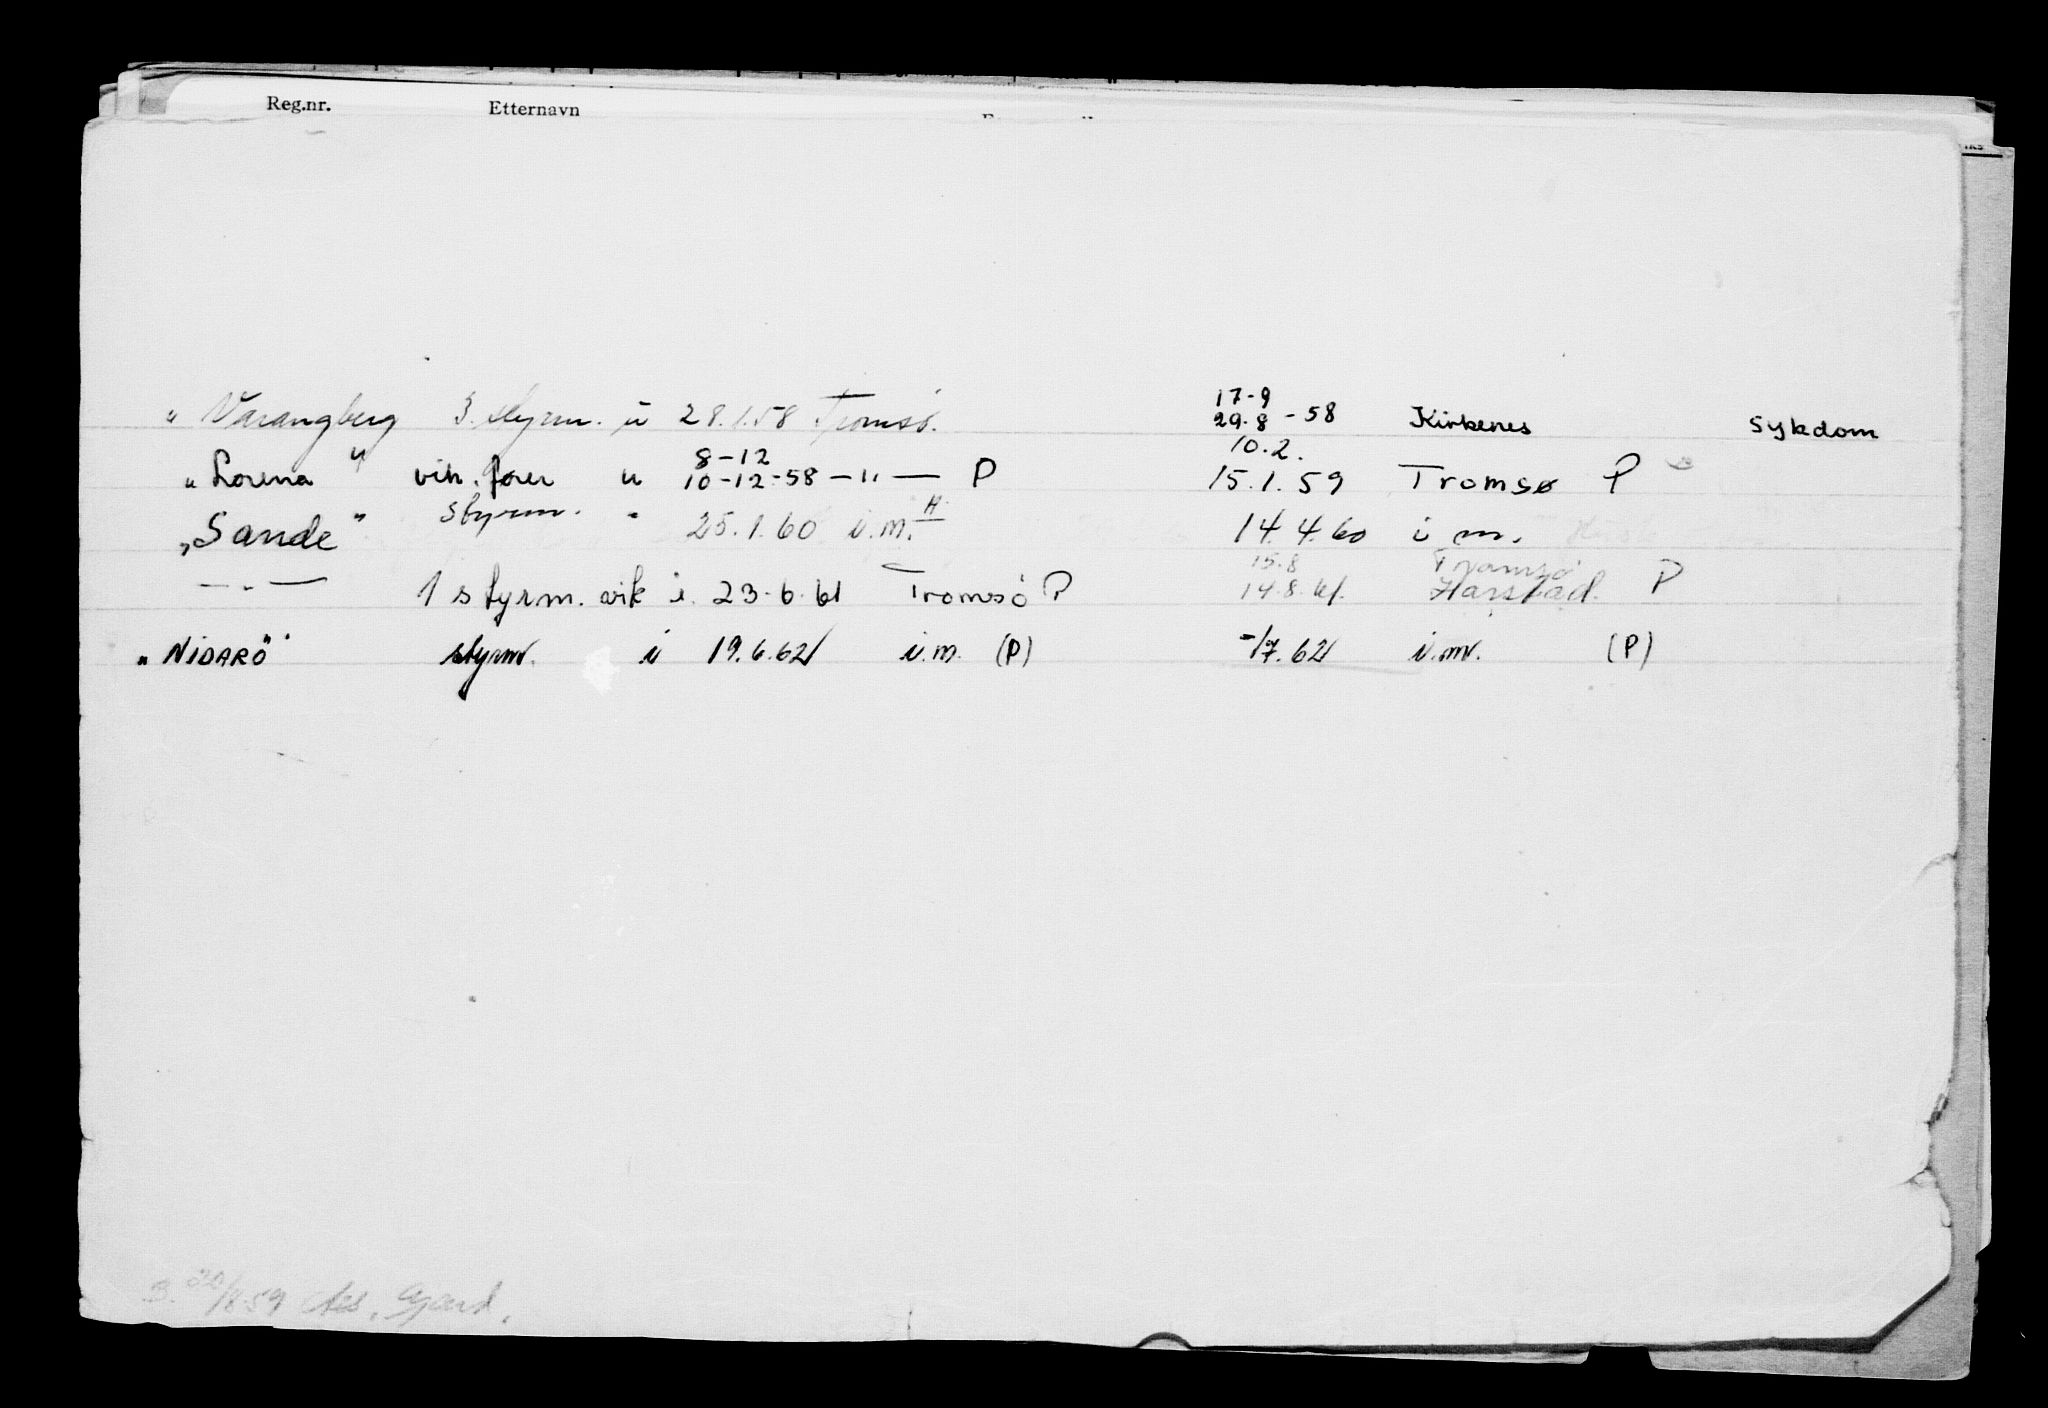 Reg.nr. Etternavn
" Varangberg 3. styrm. u 28.1.58 Tromsö. 17-9 29.8 -58 Kirkenes sykdom
"Lorena" vik. fører u 8-12 10-12-58 —"— P 10.2. 15.1.59 Tromsø P
„Sande" styrm. " 25.1.60 i.m. H 14.4.60 i m.
—"— 1 styrm. vik i. 23.6.61 Tromsö P 15.8 14.8.61. Tromsö Harstad. P
„NIDARÖ" styrm. u 19.6.62 i.m. (P) -/7.62 i.m. (P)
3. 20/8.59